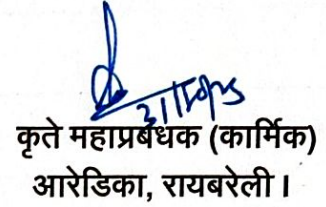 कृते महाप्रबंधक (कार्मिक)
आरेडिका, रायबरेली।